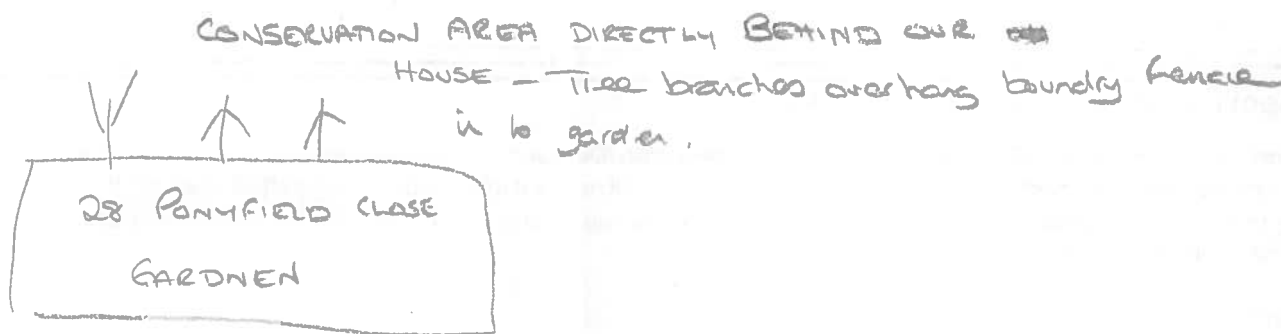 CONSERVATION AREA DIRECTLY BEHIND OUR
HOUSE - Tree branches overhang boundry fence
in to garden.
28 PONYFIELD CLOSE
GARDNEN